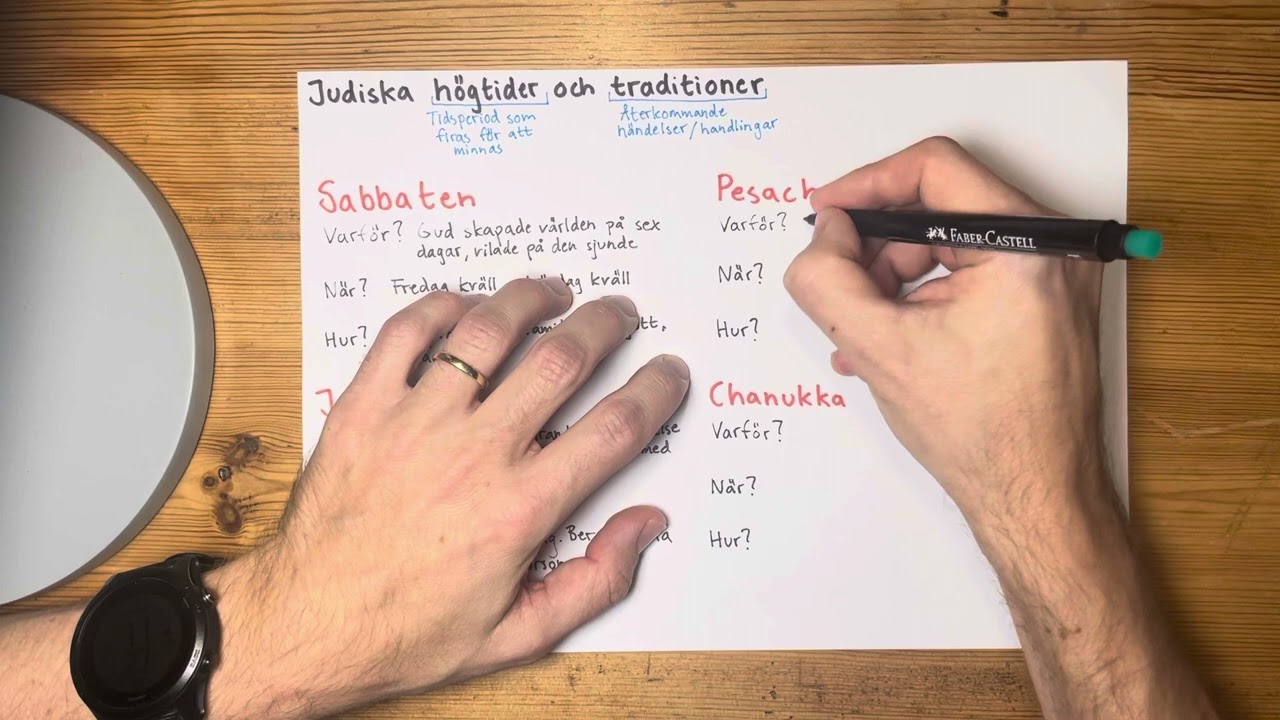 Judiska högtider och traditioner
Tidsperiod som
firas för att
minnas
Återkommande
händelser/handlingar
Sabbaten
Varför? Gud skapade världen på sex
dagar, vilade på den sjunde
När? Fredag kväll kväll
Hur?
med
Pesach
Varför?
När?
Hur?
Chanukka
Varför?
När?
Hur?
FABER-CASTELL